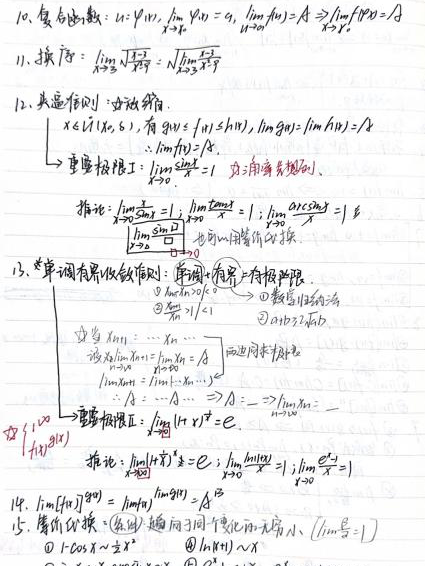 10. 复合函数: u=φ(x), lim_{x→x₀} φ(x)=a, lim_{u→a} f(u)=A ⇒ lim_{x→x₀} f[φ(x)]=A
11. 换序: lim_{x→3} √((x-3)/(x²-9)) = √(lim_{x→3} (x-3)/(x²-9))
12. 夹逼准则: 放缩.
x∈Ů(x₀,δ), 有 g(x)≤f(x)≤h(x), lim g(x)=lim h(x)=A
∴ lim f(x)=A.
→ 重要极限I: lim_{x→0} sinx/x = 1 三角
推论: lim_{x→0} x/sinx = 1; lim_{x→0} tanx/x = 1; lim_{x→0} arcsinx/x = 1
lim sin□/□ □→0 也可以用等价代换
13. 单调有界收敛准则: 单调+有界=有极限.
① >0/<0 ① 数学归纳法
② x_{n+1}/x_n >1/<1 ② a+b≥2√ab
当 x_{n+1} = … x_n …
lim_{n→∞} x_{n+1} = lim_{n→∞} x_n = A 两边同求极限
lim x_{n+1} = lim(… x_n …)
∴ A = … A … ⇒ A = _ ⇒ lim_{n→∞} x_n = _
1^∞ f(x)^{g(x)} → 重要极限II: lim_{x→0} (1+x)^{1/x} = e.
推论: lim_{x→∞} (1+1/x)^x = e; lim_{x→0} ln(1+x)/x = 1; lim_{x→0} (e^x-1)/x = 1
14. lim[f(x)]^{g(x)} = lim f(x)^{lim g(x)} = A^B
15. 等价代换: (条件) 趋向于同一个变化的无穷小 (lim β/α = 1)
① 1-cosx ~ ½x² ④ ln(x+1) ~ x